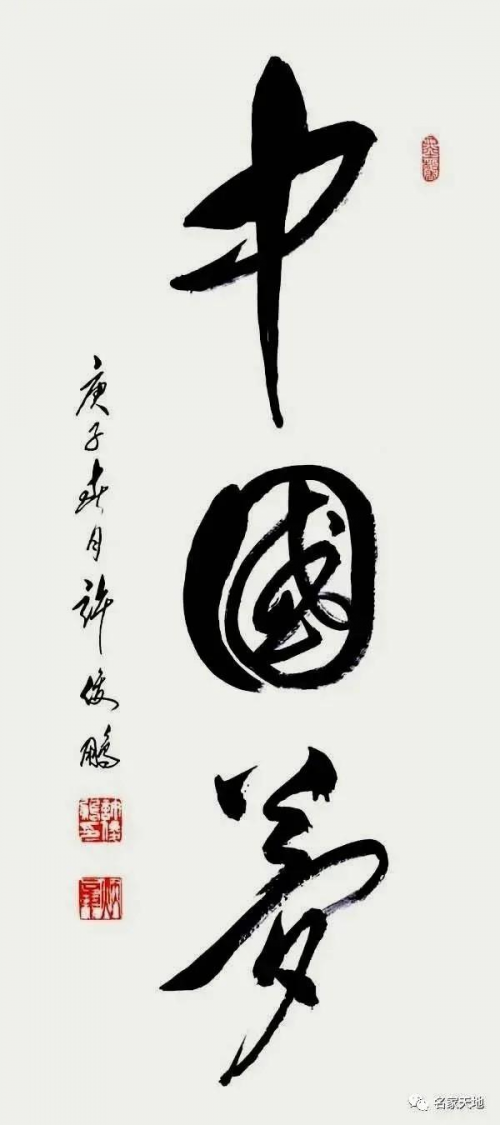 中國夢
庚子春月許俊鵬
名家天地